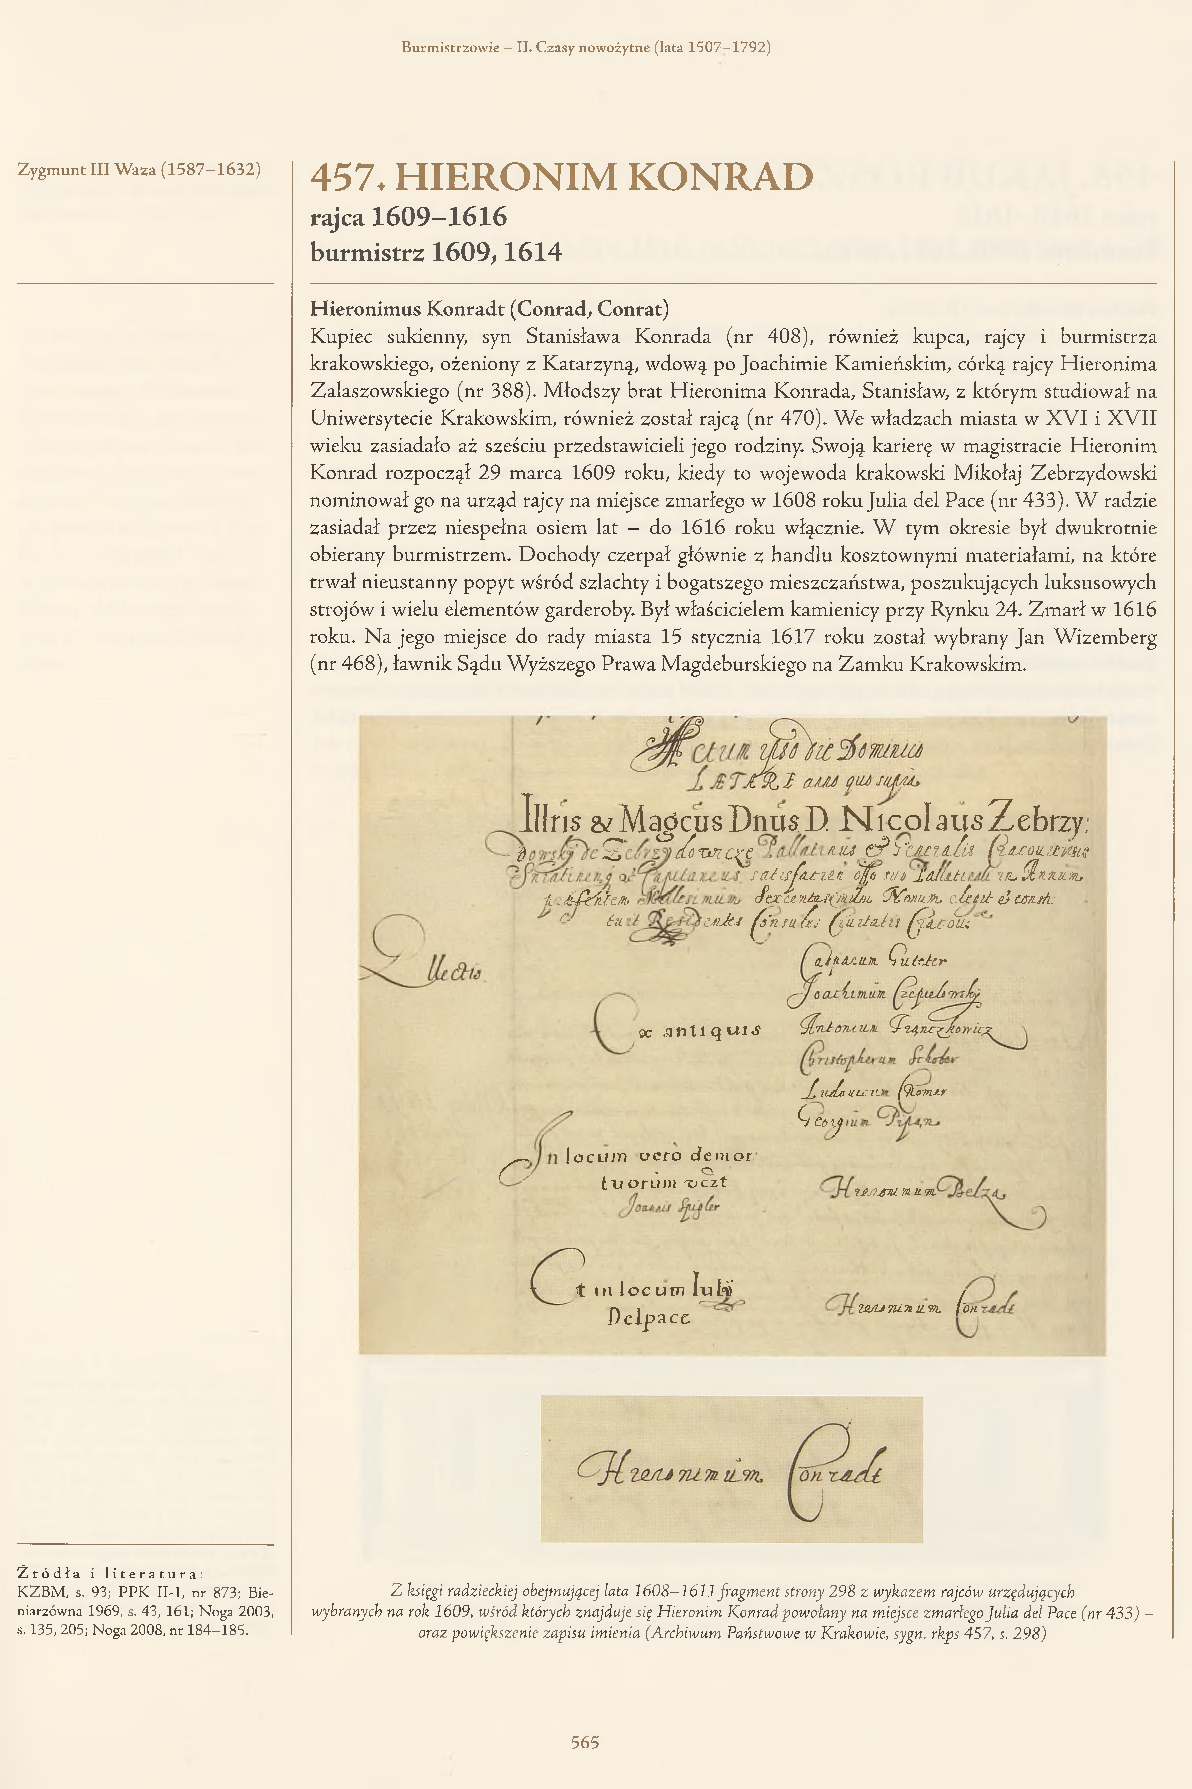 Burmistrzowie – II. Czasy nowożytne (lata 1507–1792)
Zygmunt III Waza (1587–1632)
457. HIERONIM KONRAD
rajca 1609–1616
burmistrz 1609, 1614
Hieronimus Konradt (Conrad, Conrat)
Kupiec sukienny, syn Stanisława Konrada (nr 408), również kupca, rajcy i burmistrza
krakowskiego, ożeniony z Katarzyną, wdową po Joachimie Kamieńskim, córką rajcy Hieronima
Zalaszowskiego (nr 388). Młodszy brat Hieronima Konrada, Stanisław, z którym studiował na
Uniwersytecie Krakowskim, również został rajcą (nr 470). We władzach miasta w XVI i XVII
wieku zasiadało aż sześciu przedstawicieli jego rodziny. Swoją karierę w magistracie Hieronim
Konrad rozpoczął 29 marca 1609 roku, kiedy to wojewoda krakowski Mikołaj Zebrzydowski
nominował go na urząd rajcy na miejsce zmarłego w 1608 roku Julia del Pace (nr 433). W radzie
zasiadał przez niespełna osiem lat – do 1616 roku włącznie. W tym okresie był dwukrotnie
obierany burmistrzem. Dochody czerpał głównie z handlu kosztownymi materiałami, na które
trwał nieustanny popyt wśród szlachty i bogatszego mieszczaństwa, poszukujących luksusowych
strojów i wielu elementów garderoby. Był właścicielem kamienicy przy Rynku 24. Zmarł w 1616
roku. Na jego miejsce do rady miasta 15 stycznia 1617 roku został wybrany Jan Wizemberg
(nr 468), ławnik Sądu Wyższego Prawa Magdeburskiego na Zamku Krakowskim.
Actum ipso die Dominico
LÆTARE anno quo supra
Illris & Magcus Dnus D. Nicolaus Zebrzy:
dowski de Zebrzydowice Pallatinus & Generalis
satisfaciens offo suo in Annum
Millesimum Sexcentesimum Nonum elegit & consti:
tuit Residentes Consules Civitatis
Electio
Casparum Guteter
Joachimum
Ex antiquis
Antonium
Christopherum Schober
Ludovicum
Georgium Pipan
In locum vero demor
tuorum vczt
Hieronimum Belza
Joannis Spigler
Et in locum Iulÿ
Delpace
Hieronimum Conradt
Hieronimum Conradt
Źródła i literatura:
KZBM, s. 93; PPK II-1, nr 873; Bie-
niarzówna 1969, s. 43, 161; Noga 2003,
s. 135, 205; Noga 2008, nr 184–185.
Z księgi radzieckiej obejmującej lata 1608–1611 fragment strony 298 z wykazem rajców urzędujących
wybranych na rok 1609, wśród których znajduje się Hieronim Konrad powołany na miejsce zmarłego Julia del Pace (nr 433) –
oraz powiększenie zapisu imienia (Archiwum Państwowe w Krakowie, sygn. rkps 457, s. 298)
565